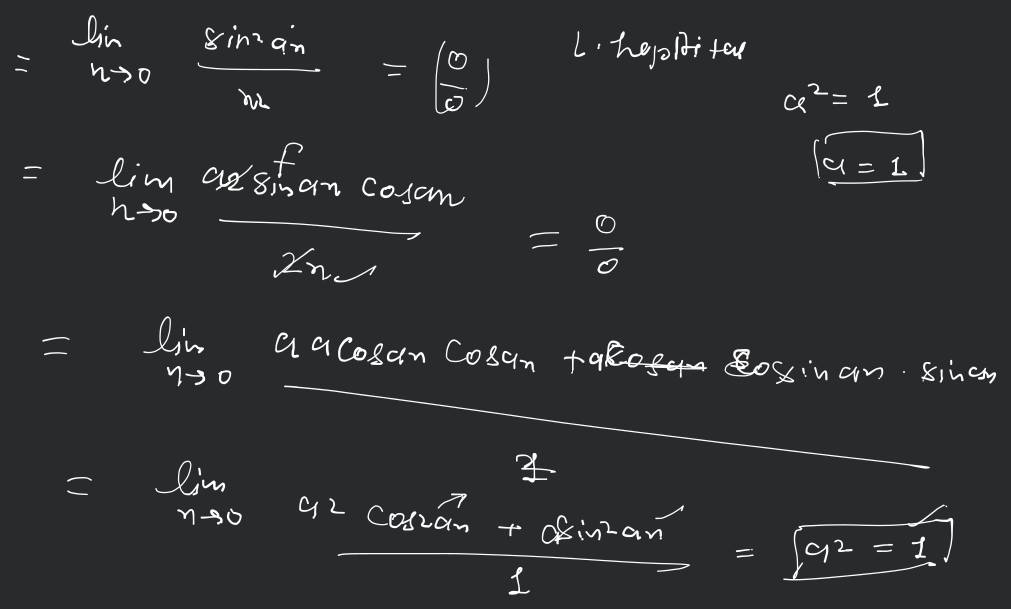 = lim n→0 sin²an / n² = (0/0) L. hopDital
a² = 1
a = 1
= lim n→0 a2 sin an cosan / 2n = 0/0
= lim n→0 a a cosan cosan + a sin an . sin an / 1
= lim n→0 a² cos²an + a sin²an / 1 = a² = 1